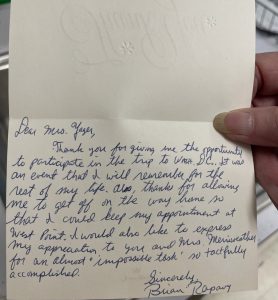 Dear Mrs. Yager,
Thank you for giving me the opportunity
to participate in the trip to Wash. D.C.. It was
an event that I will remember for the
rest of my life. Also, thanks for allowing
me to get off on the way home so
that I could keep my appointment at
West Point. I would also like to express
my appreciation to you and Mrs. Meriweather
for an almost "impossible task" so tactfully
accomplished.
Sincerely,
Brian